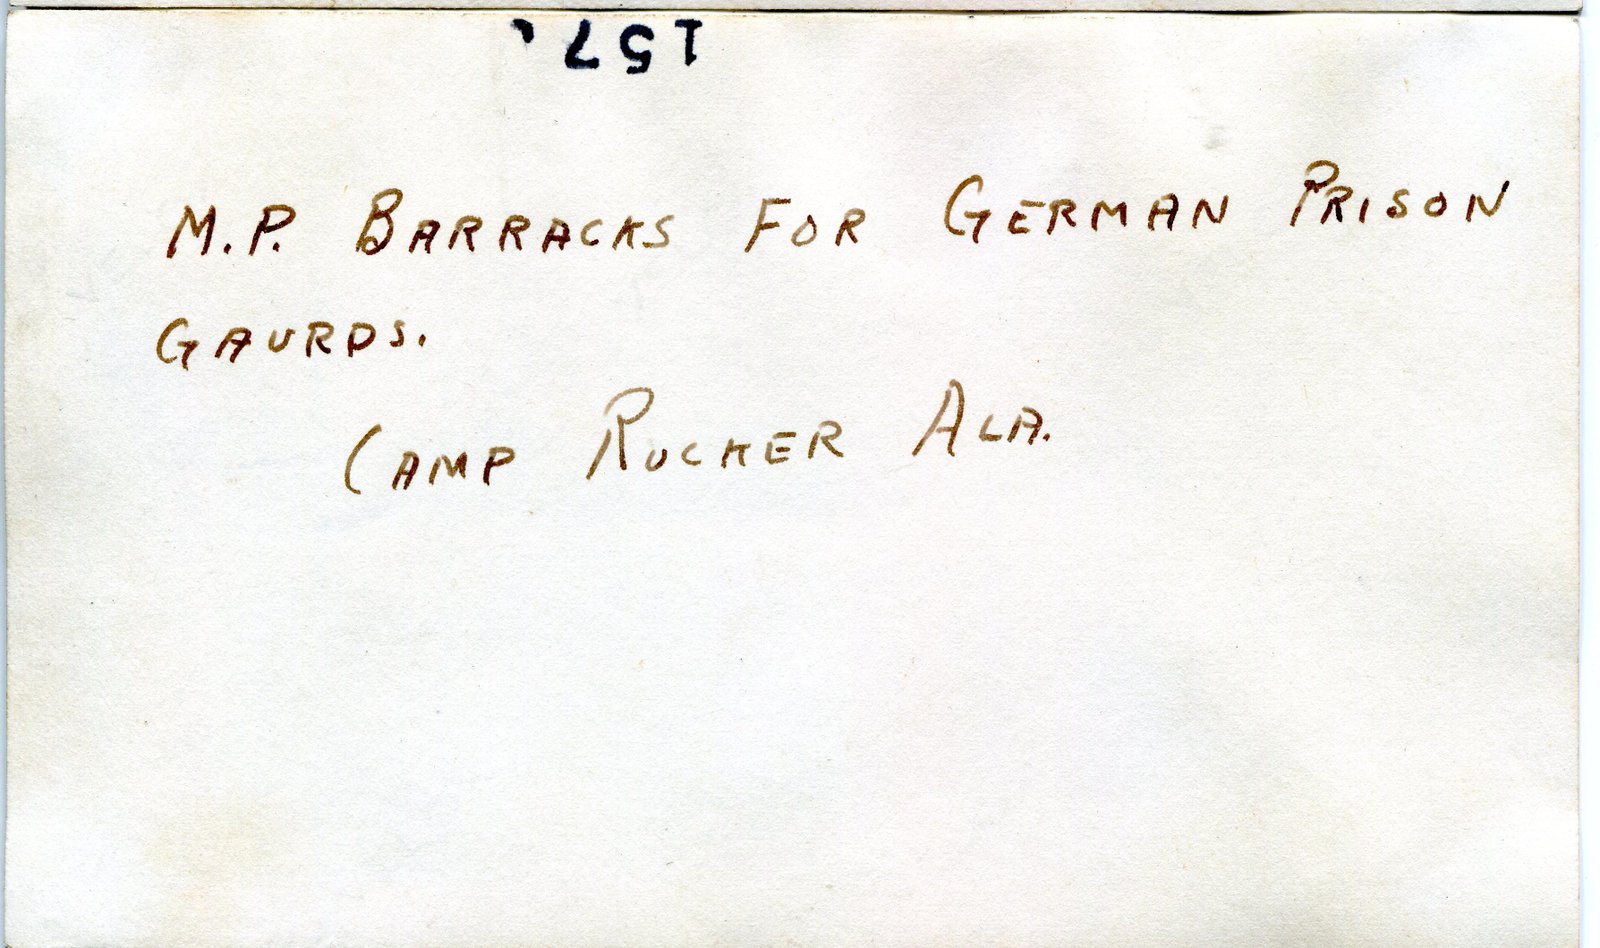 157
M.P. BARRACKS FOR GERMAN PRISON
GAURDS.
CAMP RUCKER ALA.